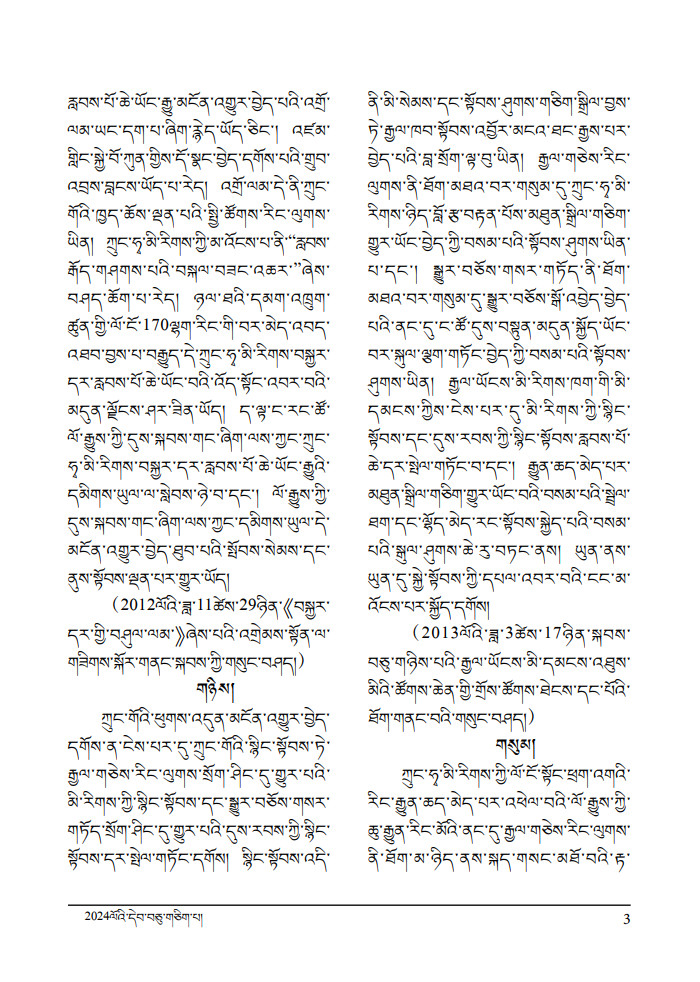 རླབས་པོ་ཆེ་ཡོང་རྒྱུ་མངོན་འགྱུར་བྱེད་པའི་འགྲོ་
ལམ་ཡང་དག་པ་ཞིག་རྙེད་ཡོད་ཅིང་། འཛམ་
གླིང་སྐྱེ་བོ་ཀུན་གྱིས་དོ་སྣང་བྱེད་དགོས་པའི་གྲུབ་
འབྲས་བླངས་ཡོད་པ་རེད། འགྲོ་ལམ་དེ་ནི་ཀྲུང་
གོའི་ཁྱད་ཆོས་ལྡན་པའི་སྤྱི་ཚོགས་རིང་ལུགས་
ཡིན། ཀྲུང་ཧྭ་མི་རིགས་ཀྱི་མ་འོངས་པ་ནི་“རླབས་
རྒོད་གཤགས་པའི་བསྐལ་བཟང་འཆར་”ཞེས་
བཤད་ཆོག་པ་རེད། ཉལ་ཐའི་དམག་འཁྲུག་
ཚུན་གྱི་ལོ་ངོ་170ལྷག་རིང་གི་བར་མེད་འབད་
འཐབ་བྱས་པ་བརྒྱུད་དེ་ཀྲུང་ཧྭ་མི་རིགས་བསྐྱར་
དར་རླབས་པོ་ཆེ་ཡོང་བའི་འོད་སྟོང་འབར་བའི་
མདུན་ལྗོངས་ཤར་ཟིན་ཡོད། ད་ལྟ་ང་རང་ཚོ་
ལོ་རྒྱུས་ཀྱི་དུས་སྐབས་གང་ཞིག་ལས་ཀྱང་ཀྲུང་
ཧྭ་མི་རིགས་བསྐྱར་དར་རླབས་པོ་ཆེ་ཡོང་རྒྱུའི་
དམིགས་ཡུལ་ལ་སླེབས་ཉེ་བ་དང་། ལོ་རྒྱུས་ཀྱི་
དུས་སྐབས་གང་ཞིག་ལས་ཀྱང་དམིགས་ཡུལ་དེ་
མངོན་འགྱུར་བྱེད་ཐུབ་པའི་སྤོབས་སེམས་དང་
ནུས་སྟོབས་ལྡན་པར་གྱུར་ཡོད།
(2012ལོའི་ཟླ་11ཚེས་29ཉིན་《བསྐྱར་
དར་གྱི་བཤུལ་ལམ་》ཞེས་པའི་འགྲེམས་སྟོན་ལ་
གཟིགས་སྐོར་གནང་སྐབས་ཀྱི་གསུང་བཤད།)
གཉིས།
ཀྲུང་གོའི་ཕུགས་འདུན་མངོན་འགྱུར་བྱེད་
དགོས་ན་ངེས་པར་དུ་ཀྲུང་གོའི་སྙིང་སྟོབས་ཏེ་
རྒྱལ་གཅེས་རིང་ལུགས་སྲོག་ཤིང་དུ་གྱུར་པའི་
མི་རིགས་ཀྱི་སྙིང་སྟོབས་དང་སྒྱུར་བཅོས་གསར་
གཏོད་སྲོག་ཤིང་དུ་གྱུར་པའི་དུས་རབས་ཀྱི་སྙིང་
སྟོབས་དར་སྤེལ་གཏོང་དགོས། སྙིང་སྟོབས་འདི་
ནི་མི་སེམས་དང་སྟོབས་ཤུགས་གཅིག་སྒྲིལ་བྱས་
ཏེ་རྒྱལ་ཁབ་སྟོབས་འབྱོར་མངའ་ཐང་རྒྱས་པར་
བྱེད་པའི་བླ་སྲོག་ལྟ་བུ་ཡིན། རྒྱལ་གཅེས་རིང་
ལུགས་ནི་ཐོག་མཐའ་བར་གསུམ་དུ་ཀྲུང་ཧྭ་མི་
རིགས་ཉིད་བློ་རྩ་བརྟན་པོས་མཐུན་སྒྲིལ་གཅིག་
གྱུར་ཡོང་བྱེད་ཀྱི་བསམ་པའི་སྟོབས་ཤུགས་ཡིན་
པ་དང་། སྒྱུར་བཅོས་གསར་གཏོད་ནི་ཐོག་
མཐའ་བར་གསུམ་དུ་སྒྱུར་བཅོས་སྒོ་འབྱེད་བྱེད་
པའི་ནང་དུ་ང་ཚོ་དུས་བསྟུན་མདུན་སྐྱོད་ཡོང་
བར་སྐུལ་ལྕག་གཏོང་བྱེད་ཀྱི་བསམ་པའི་སྟོབས་
ཤུགས་ཡིན། རྒྱལ་ཡོངས་མི་རིགས་ཁག་གི་མི་
དམངས་ཀྱིས་ངེས་པར་དུ་མི་རིགས་ཀྱི་སྙིང་
སྟོབས་དང་དུས་རབས་ཀྱི་སྙིང་སྟོབས་རླབས་པོ་
ཆེ་དར་སྤེལ་གཏོང་བ་དང་། རྒྱུན་ཆད་མེད་པར་
མཐུན་སྒྲིལ་གཅིག་གྱུར་ཡོང་བའི་བསམ་པའི་སྦྲེལ་
ཐག་དང་ལྷོད་མེད་རང་སྟོབས་སྐྱེད་པའི་བསམ་
པའི་སྒུལ་ཤུགས་ཆེ་རུ་བཏང་ནས། ཡུན་ནས་
ཡུན་དུ་སྐྱེ་སྟོབས་ཀྱི་དཔལ་འབར་བའི་ངང་མ་
འོངས་པར་སྐྱོད་དགོས།
(2013ལོའི་ཟླ་3ཚེས་17ཉིན་སྐབས་
བཅུ་གཉིས་པའི་རྒྱལ་ཡོངས་མི་དམངས་འཐུས་
མིའི་ཚོགས་ཆེན་གྱི་གྲོས་ཚོགས་ཐེངས་དང་པོའི་
ཐོག་གནང་བའི་གསུང་བཤད།)
གསུམ།
ཀྲུང་ཧྭ་མི་རིགས་ཀྱི་ལོ་ངོ་སྟོང་ཕྲག་འགའི་
རིང་རྒྱུན་ཆད་མེད་པར་འཕེལ་བའི་ལོ་རྒྱུས་ཀྱི་
ཆུ་རྒྱུན་རིང་མོའི་ནང་དུ་རྒྱལ་གཅེས་རིང་ལུགས་
ནི་ཐོག་མ་ཉིད་ནས་སྐད་གསང་མཐོ་བའི་རྟ་
2024ལོའི་དེབ་བཅུ་གཅིག་པ།
3